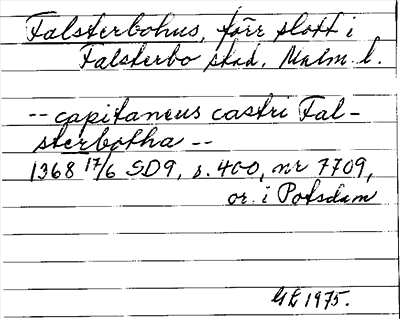 Falsterbohus, förr slott i
Falsterbo stad, Malm. l.
-- capitaneus castri Fal-
sterbotha --
1368 17/6 SD9, s. 400, nr 7709,
or. i Potsdam
GE 1975.